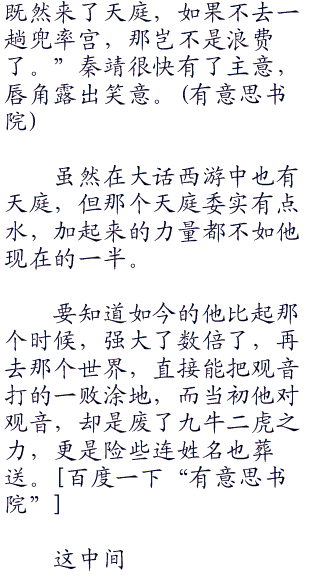 既然来了天庭，如果不去一
趟兜率宫，那岂不是浪费
了。”秦靖很快有了主意，
唇角露出笑意。(有意思书
院)
虽然在大话西游中也有
天庭，但那个天庭委实有点
水，加起来的力量都不如他
现在的一半。
要知道如今的他比起那
个时候，强大了数倍了，再
去那个世界，直接能把观音
打的一败涂地，而当初他对
观音，却是废了九牛二虎之
力，更是险些连姓名也葬
送。[百度一下“有意思书
院”]
这中间